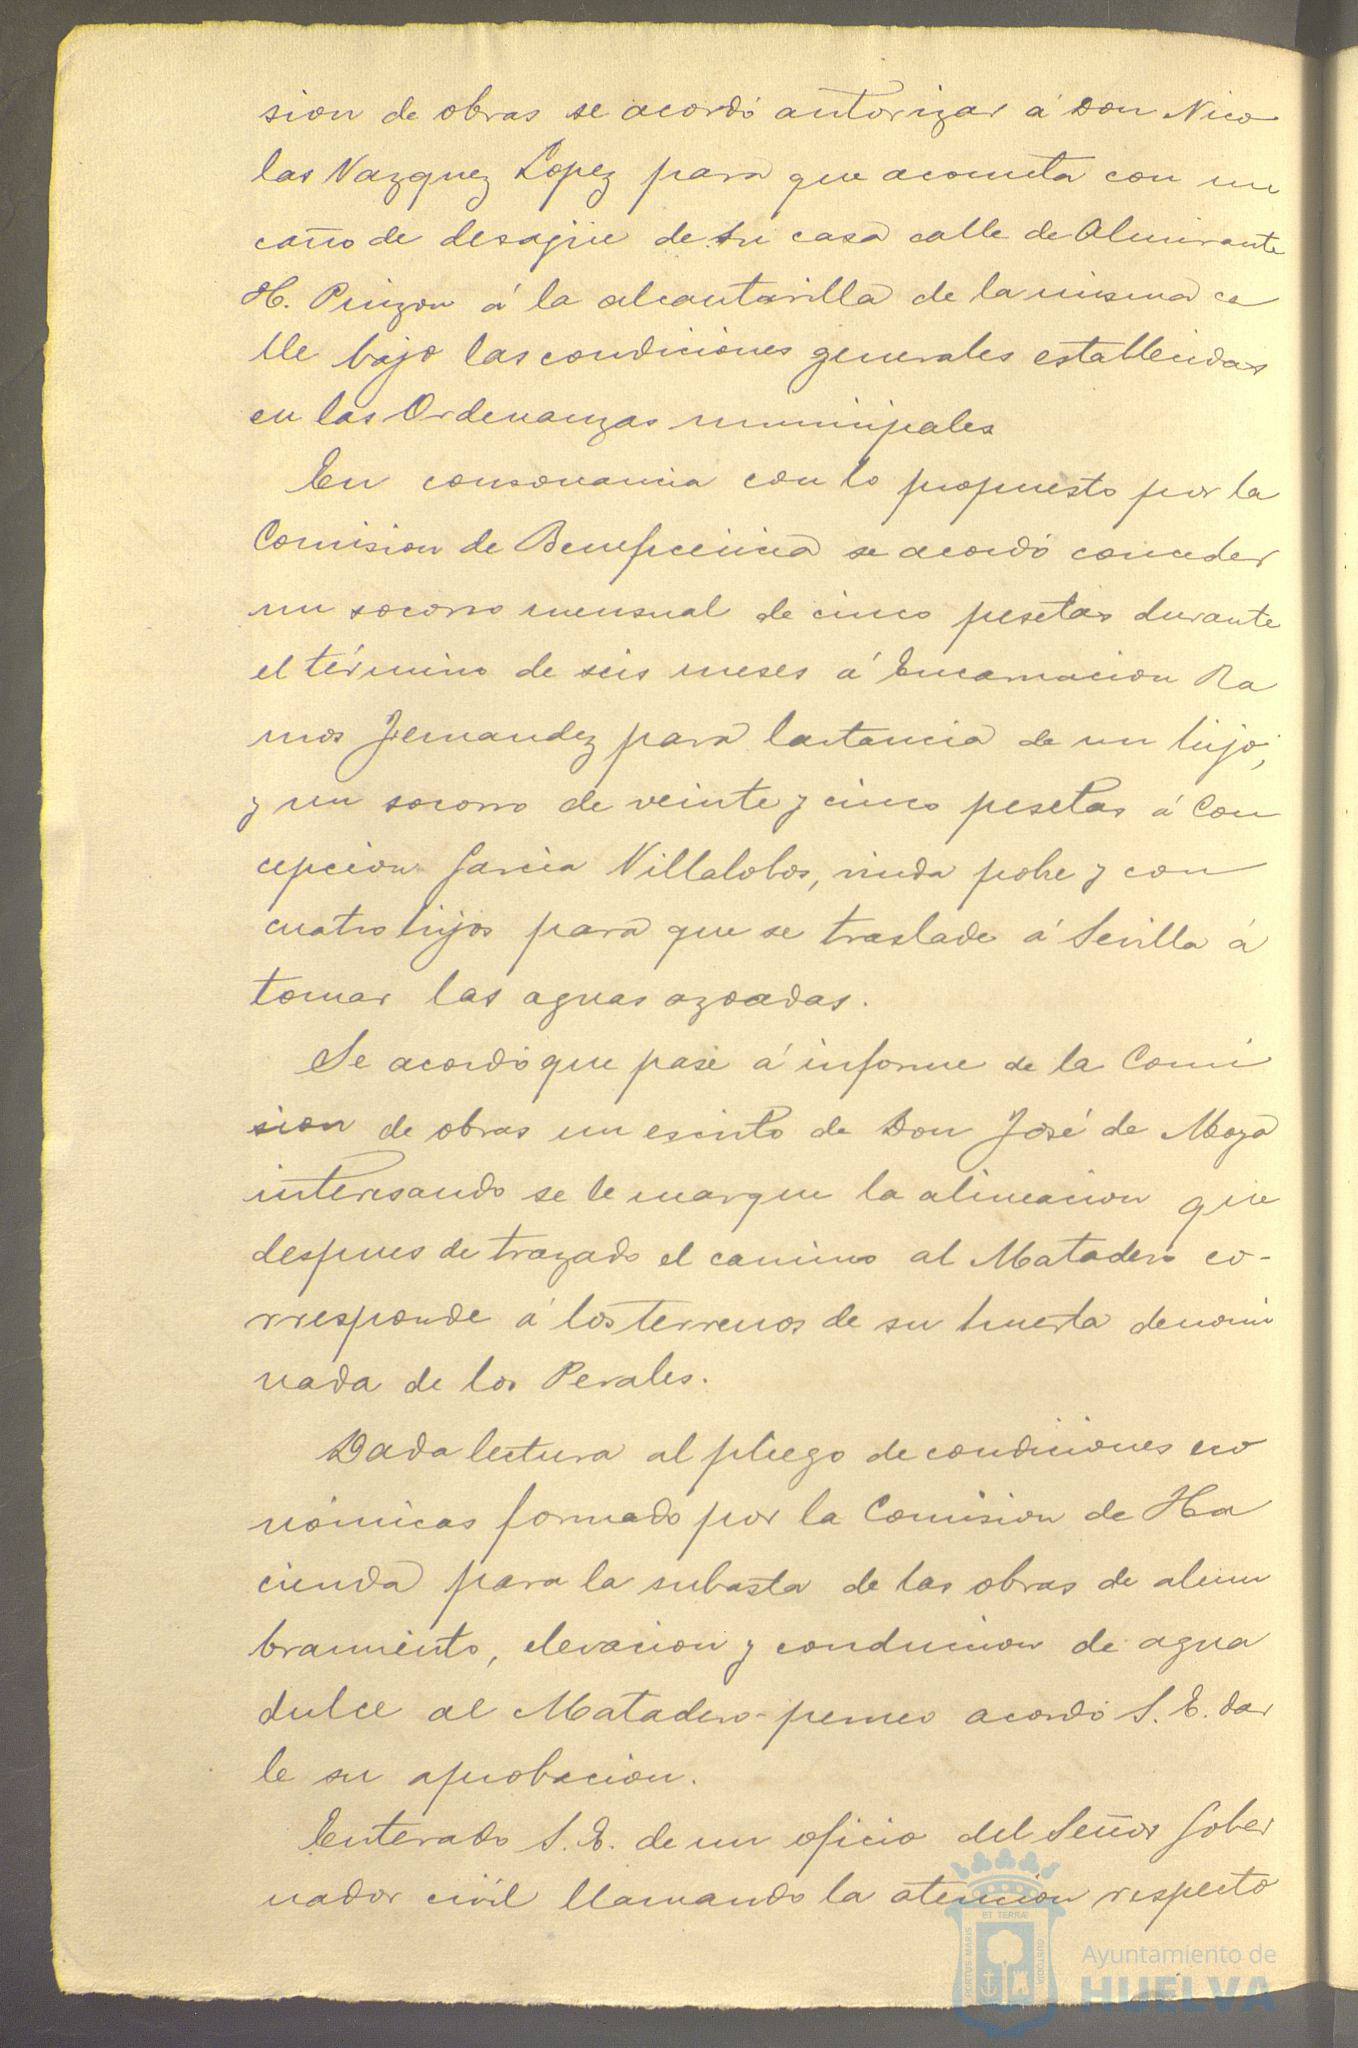 sion de obras se acordó autorizar á Don Nico
las Vazquez Lopez para que acometa con un
caño de desagüe de su casa calle de Almirante
H. Pinzon á la alcantarilla de la misma ca
lle bajo las condiciones generales establecidas
en las Ordenanzas municipales
En consonancia con lo propuesto por la
Comision de Beneficencia se acordó conceder
un socorro mensual de cinco pesetas durante
el término de seis meses á Encarnacion Ra
mos Fernandez para lactancia de un hijo;
y un socorro de veinte y cinco pesetas á Con
cepcion Garcia Villalobos, viuda pobre y con
cuatro hijos para que se traslade á Sevilla á
tomar las aguas azoadas.
Se acordó que pase á informe de la Comi
sion de obras un escrito de Don José de Moya
interesando se le marque la alineacion que
despues de trazado el camino al Matadero co-
rresponde á los terrenos de su huerta denomi
nada de los Perales.
Dada lectura al pliego de condiciones eco
nómicas formado por la Comision de Ha
cienda para la subasta de las obras de alum
bramiento, elevacion y conduccion de agua
dulce al Matadero perneo acordó S. E. dar
le su aprobacion.
Enterado S. E. de un oficio del Señor Gober
nador civil llamando la atencion respecto
PORTUS MARIS
ET TERRÆ
CUSTODIA
Ayuntamiento de
HUELVA